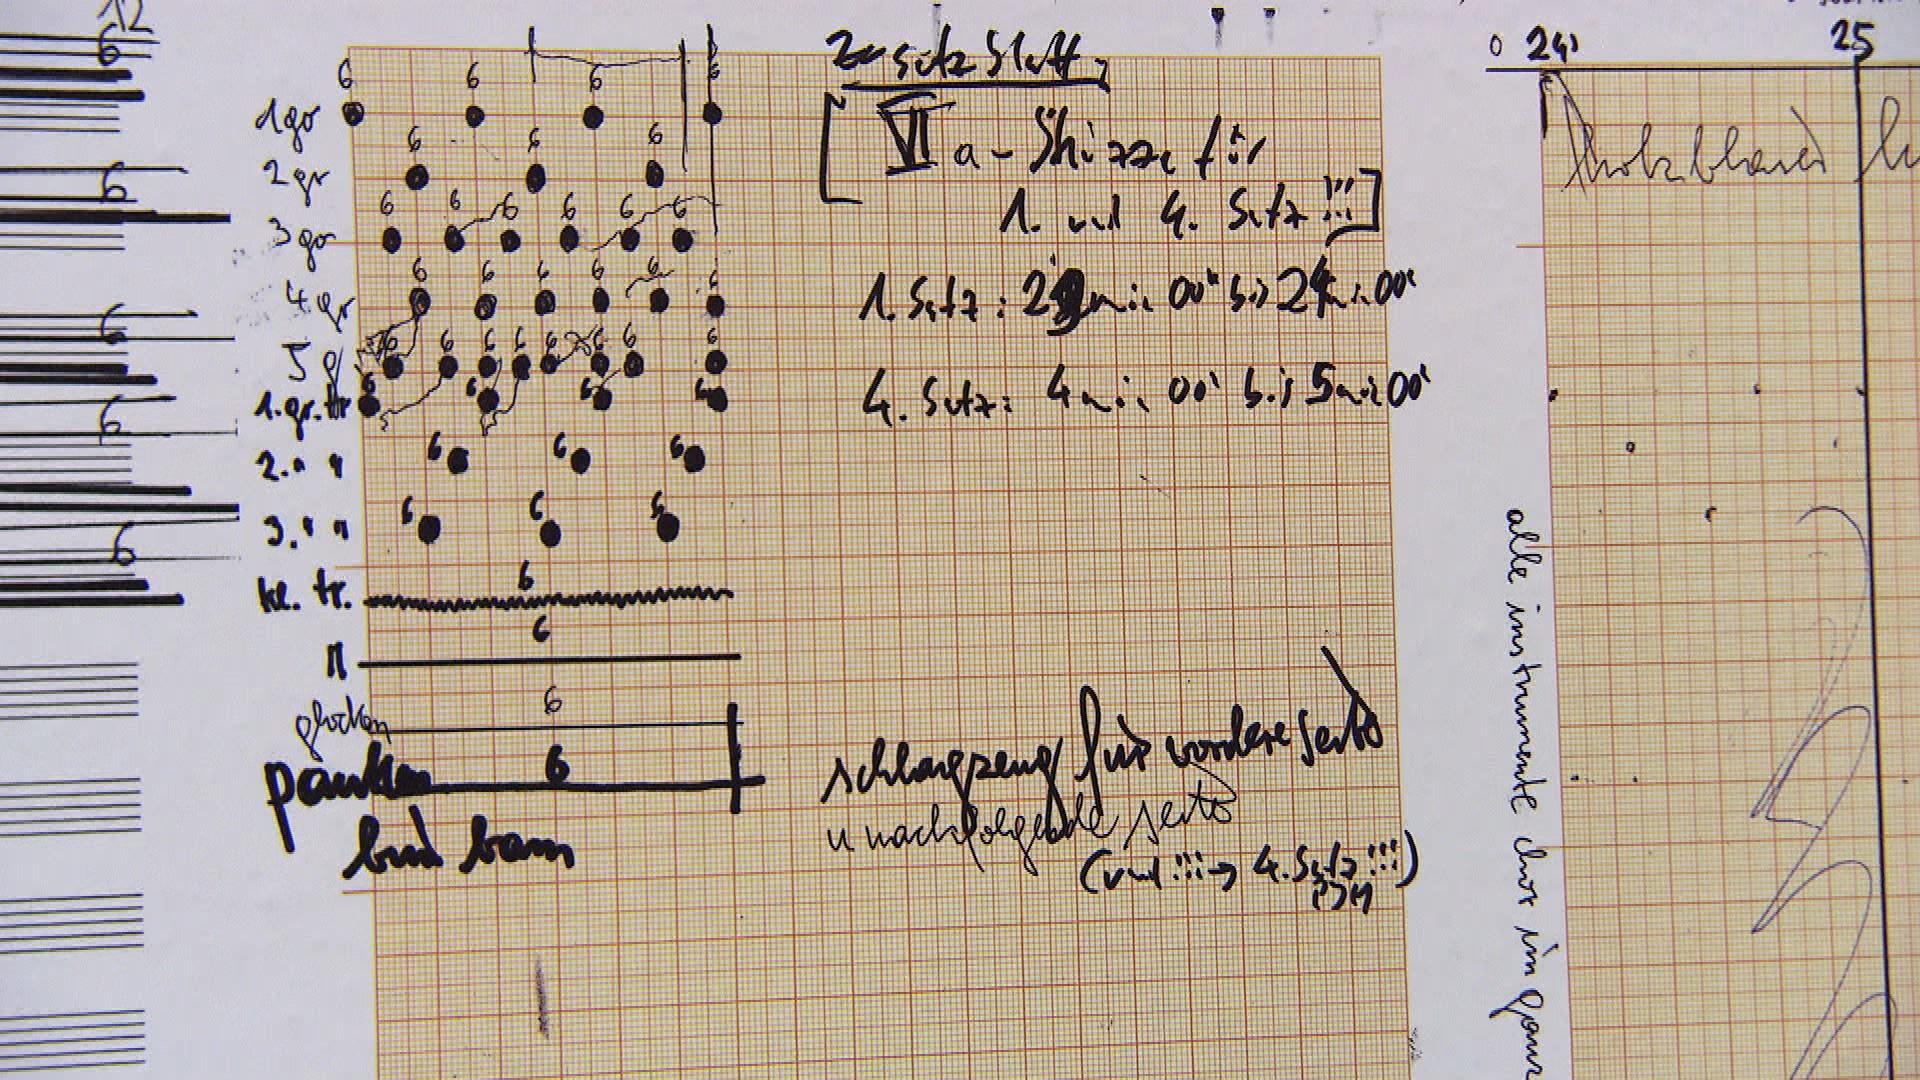 12
6
6
6
6
6
6 6 6 6
1 gr
6 6 6
2 gr
6 6 6 6 6 6
3 gr
6 6 6 6 6 6
4 gr
6 6 6 6 6 6 6 6
5 g
6 6 6 6
1. gr. tr
6 6 6
2. " "
6 6 6
3. " "
6
kl. tr.
6
"
6
glocken
6
pauken
bim bam
Zusatzblatt
[VI a - Skizze für
1. und 4. Satz !!!]
1. Satz: min 00' bis 24 min 00'
4. Satz: 4 min 00' bis 5 min 00'
schlagzeug für vordere seite
u nachfolgende seite
(und !!! → 4. Satz !!!)
0 24 25
holzbläser
alle instrumente chor im ganz